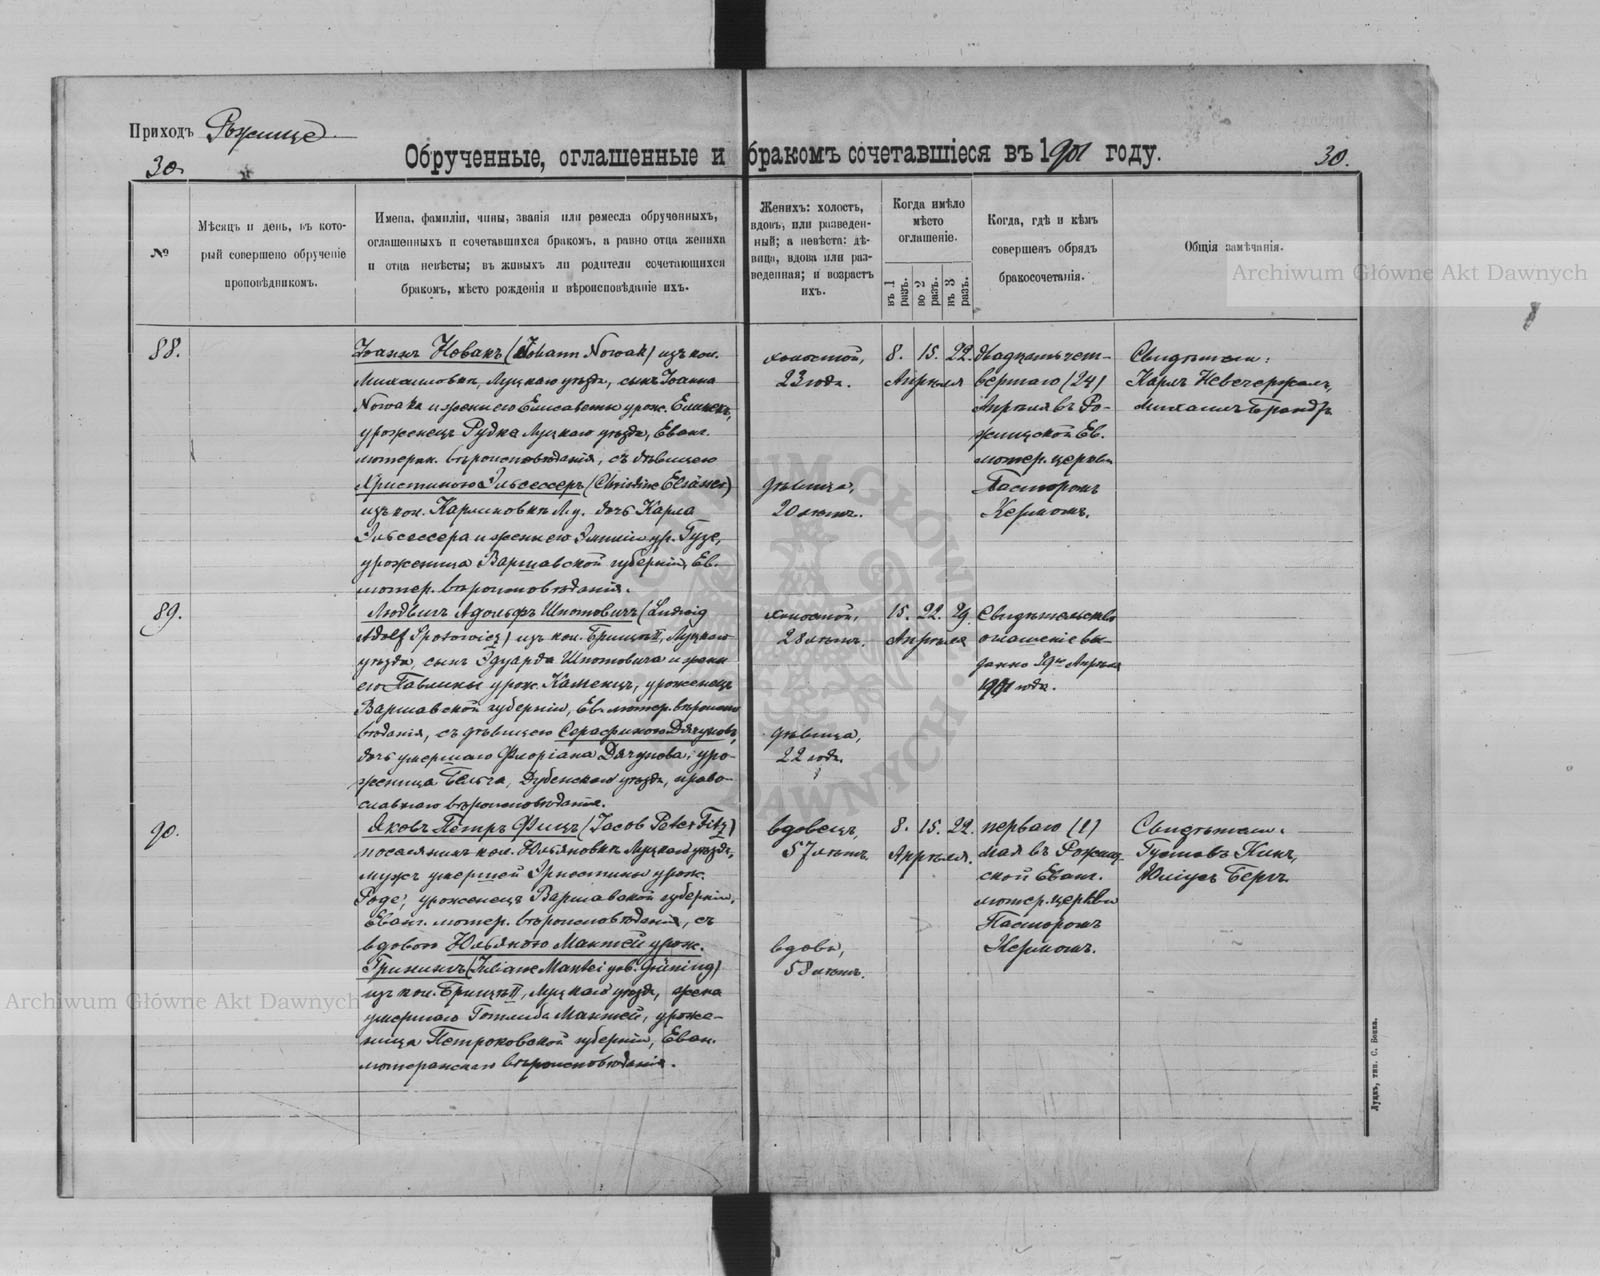 Приходъ Рожище
Обрученные, оглашенные и бракомъ сочетавшіеся въ 1901 году.
30.
30.
№
Мѣсяцъ и день, въ кото-
рый совершено обрученіе
проповѣдникомъ.
Имена, фамиліи, чины, званія или ремесла обрученныхъ,
оглашенныхъ и сочетавшихся бракомъ, а равно отца жениха
и отца невѣсты; въ живыхъ ли родители сочетающихся
бракомъ, мѣсто рожденія и вѣроисповѣданіе ихъ.
Женихъ: холостъ,
вдовъ, или разведен-
ный; а невѣста: дѣ-
вица, вдова или раз-
веденная; и возрастъ
ихъ.
Когда имѣло
мѣсто
оглашеніе.
въ 1 разъ.
во 2 разъ.
въ 3 разъ.
Когда, гдѣ и кѣмъ
совершенъ обрядъ
бракосочетанія.
Общія замѣчанія.
Archiwum Główne Akt Dawnych
88.
Іоаннъ Новакъ (Johann Nowak) изъ кол.
Михайловки, Луцкаго уѣзда, сынъ Іоанна
Nowaka и жены его Елисаветы урож.
уроженецъ Рудка Луцкаго уѣзда, Еванг.
лютеран. вѣроисповѣданія, съ дѣвицею
Христиною Эльсессеръ (Christine Elsässer)
изъ кол. Карлиновки Л.у. дочь Карла
Эльсессера и жены его Эмиліи ур. Гузе,
уроженица Варшавской губерніи, Ев.
лютер. вѣроисповѣданія.
холостой,
23 года.
дѣвица,
20 лѣтъ.
8. 15. 22.
Апрѣля
двадцать чет-
вертаго (24)
Апрѣля въ Ро-
жищской Ев.
лютер. церкви
Пасторомъ
Керномъ.
Свидѣтели:
Карлъ
Михаилъ Брандъ
89.
Людвигъ Адольфъ Шпотовичъ (Ludwig
Adolf Spotowicz) изъ кол. Брищъ II, Луцкаго
уѣзда, сынъ Эдуарда Шпотовича и жены
его Павлины урож. Каменцъ, уроженецъ
Варшавской губерніи, Ев. лютер. вѣроиспо-
вѣданія, съ дѣвицею Серафимою Дячуковъ,
дочь умершаго Флоріана Дячукова, уро-
женица Дубенскаго уѣзда, право-
славнаго вѣроисповѣданія.
холостой,
28 лѣтъ.
дѣвица,
22 года.
15. 22. 29.
Апрѣля
Свидѣтельство
оглашенія вы-
данно 29го Апрѣля
1901 года.
90.
Яковъ Петръ Фицъ (Jacob Peter Fitz)
поселянинъ кол. Юльяновки Луцкаго уѣзда,
мужъ умершей Эрнестины урож.
Роде, уроженецъ Варшавской губерніи,
Еванг. лютер. вѣроисповѣданія, съ
вдовою Юльяною Мантей урож.
Грунингъ (Juliane Mantei geb. Grüning)
изъ кол. Брищъ II, Луцкаго уѣзда, жена
умершаго Готлиба Мантей, уроже-
ница Петроковской губерніи, Еван.
лютеранскаго вѣроисповѣданія.
вдовецъ,
57 лѣтъ.
вдова,
58 лѣтъ.
8. 15. 22.
Апрѣля.
перваго (1)
мая въ Рожищ-
ской Еванг.
лютер. церкви
Пасторомъ
Керномъ.
Свидѣтели:
Густавъ Кинъ,
Юліусъ Бергъ.
Archiwum Główne Akt Dawnych
Луцкъ, тип. С. Бокка.